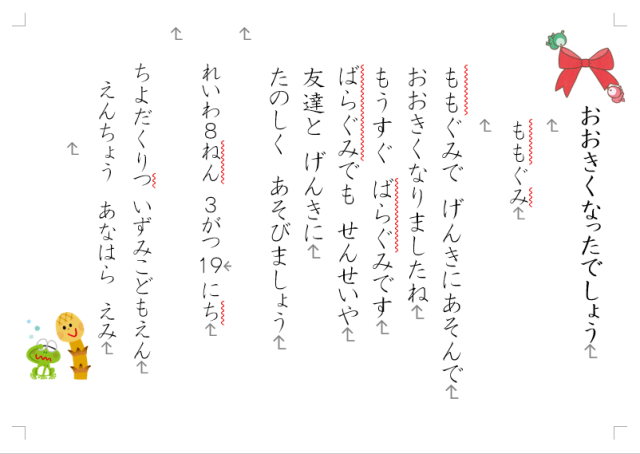 おおきくなったでしょう
ももぐみ
ももぐみで　げんきにあそんで
おおきくなりましたね
もうすぐ　ばらぐみです
ばらぐみでも　せんせいや
友達と　げんきに
たのしく　あそびましょう
れいわ８ねん　３がつ　19にち
ちよだくりつ　いずみこどもえん
えんちょう　あなはら　えみ